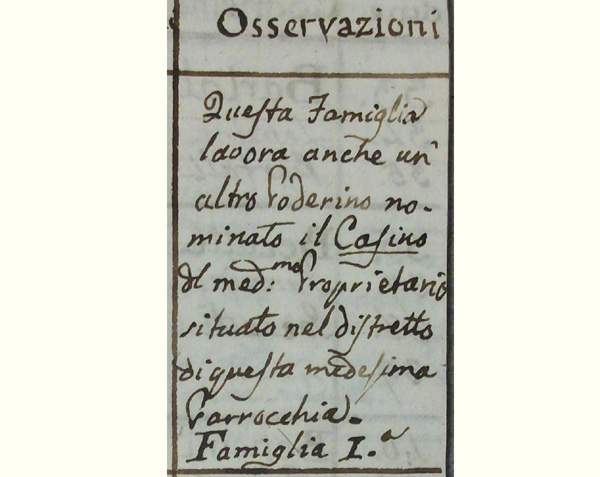 Osservazioni
Questa Famiglia
lavora anche un'
altro Poderino no-
minato il Casino
dl med:mo Proprietario
situato nel distretto
di questa medesima
Parrocchia.
Famiglia I.a